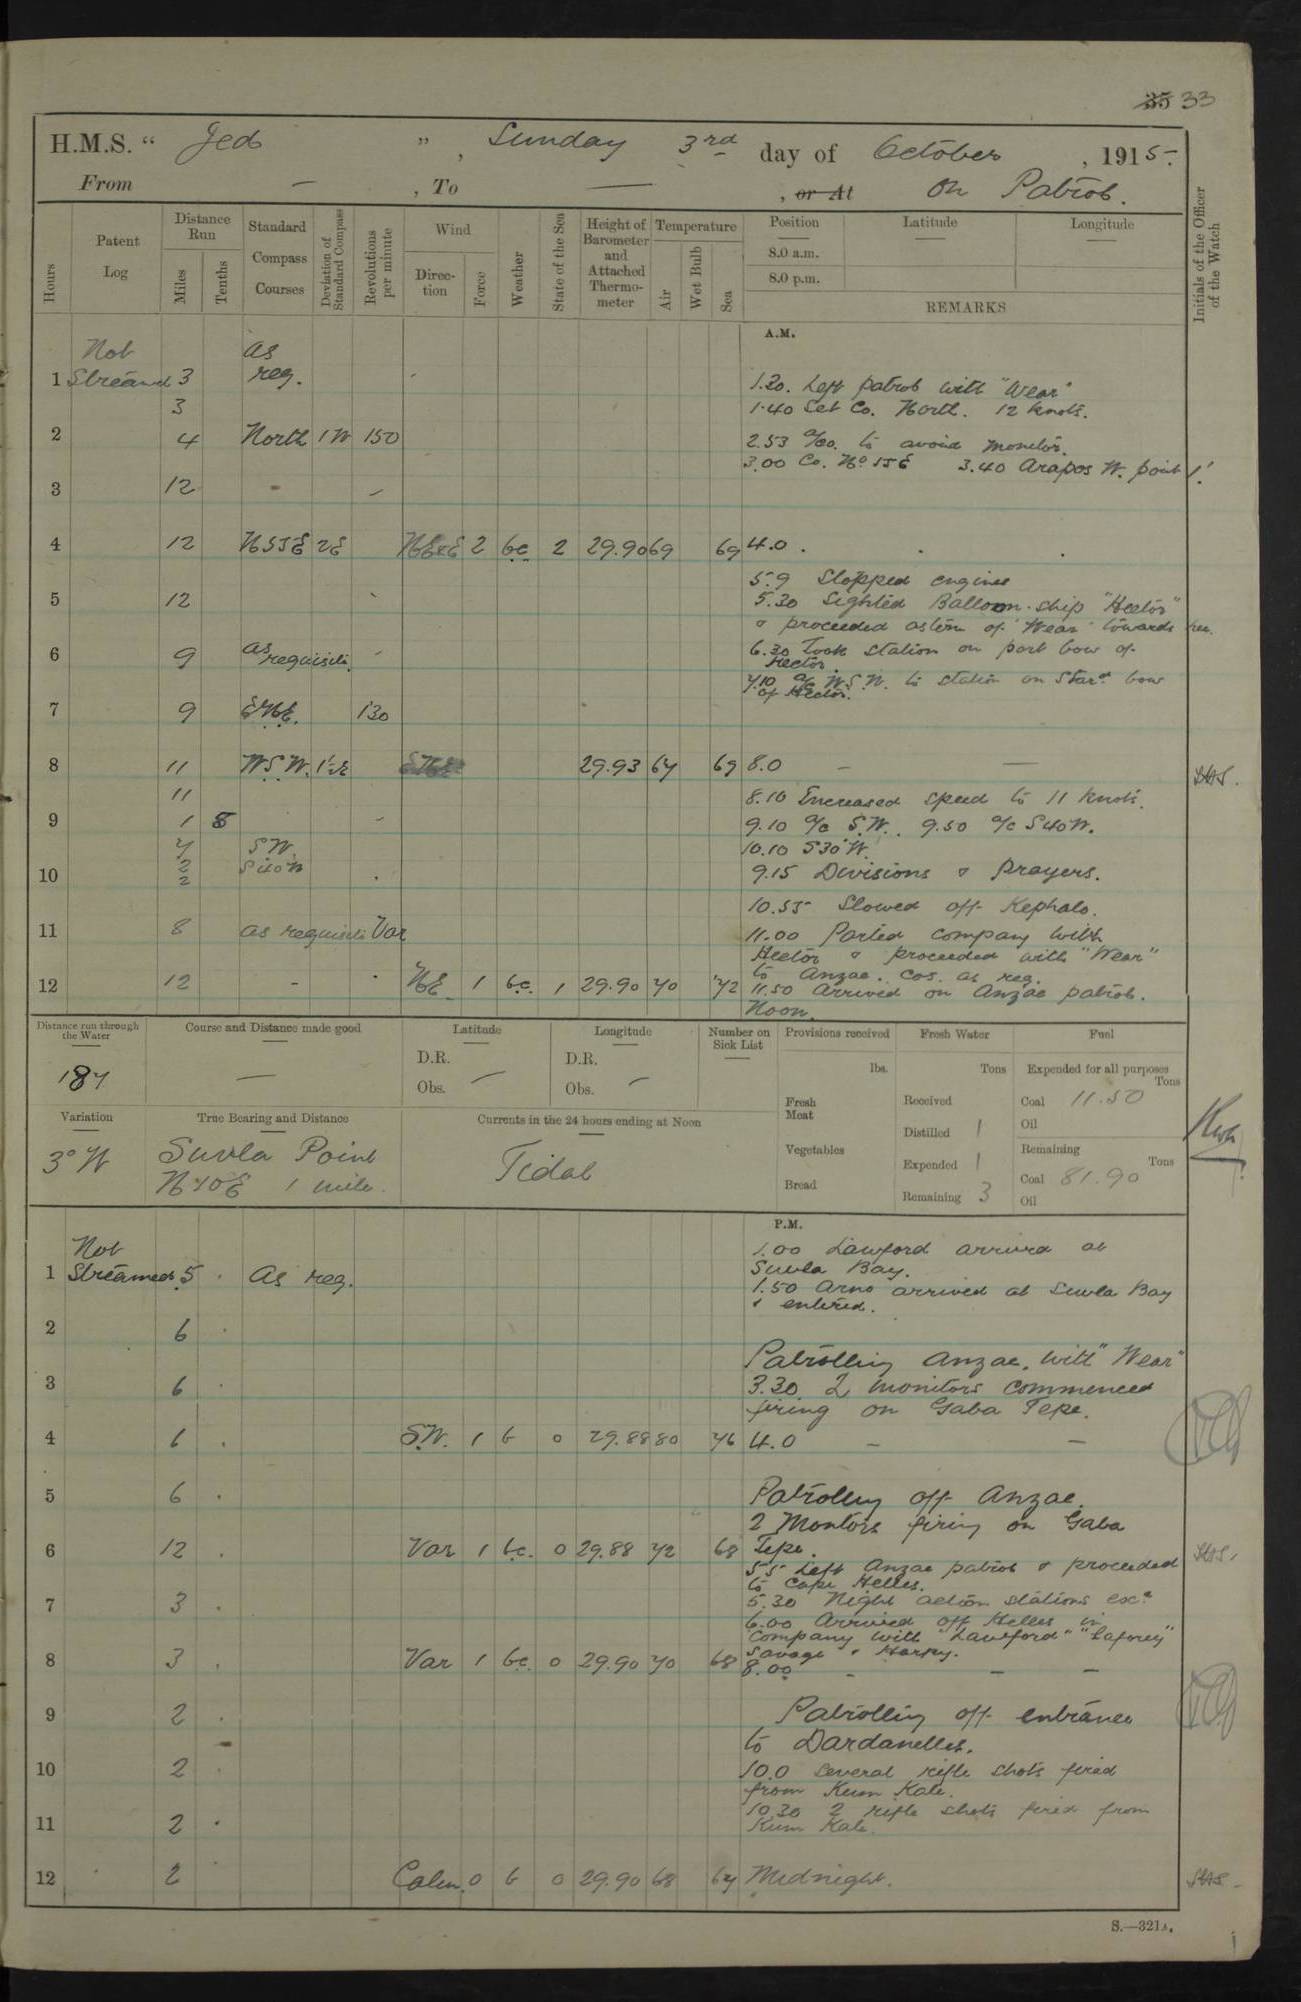 35 33
H.M.S. " Jed ", Sunday 3rd day of October, 1915.
From — , To — , or At On Patrol.
Hours
Patent Log
Distance Run
Miles
Tenths
Standard Compass Courses
Deviation of Standard Compass
Revolutions per minute
Wind
Direction
Force
Weather
State of the Sea
Height of Barometer and Attached Thermometer
Temperature
Air
Wet Bulb
Sea
Position
Latitude
Longitude
8.0 a.m.
8.0 p.m.
REMARKS
Initials of the Officer of the Watch
A.M.
Not as
1 Streamed 3 req.
1.20. Left patrol with "Wear"
3
1.40 Set Co. North. 12 knots.
2 4 North 1W 150
2.53 a/co. to avoid monitor.
3.00 Co. No 55 E 3.40 Arapos W. point 1'.
3 12 -
4 12 N55E 2E 2 bc 2 29.90 69 69 4.0 .
5.9 Stopped engines
5 12
5.30 Sighted Balloon-ship "Hector"
& proceeded astern of "Wear" towards her.
6 9 as requisite
6.30 Took station on port bow of
Hector.
7.10 a/c W.S.W. to station on Stard bow
of Hector.
7 9 130
8 11 W.S.W. 29.93 67 69 8.0 — —
11
8.10 Increased speed to 11 knots.
9 1 8
9.10 a/c S.W. 9.50 a/c S40W.
7 SW
10.10 S30°W.
2 S40W
10 2
9.15 Divisions & Prayers.
10.55 Slowed off Kephalo.
11 8 as requisite Var
11.00 Parted company with
Hector & proceeded with "Wear"
to Anzac. cos. as req.
12 12 - NE 1 bc. 1 29.90 70 72 11.50 Arrived on Anzac patrol.
Noon.
Distance run through the Water
187
Course and Distance made good
—
Latitude
D.R.
Obs. —
Longitude
D.R.
Obs. —
Number on Sick List
—
Provisions received
lbs.
Fresh Meat
Vegetables
Bread
Fresh Water
Tons
Received
Distilled 1
Expended 1
Remaining 3
Fuel
Expended for all purposes
Tons
Coal 11.50
Oil
Remaining
Tons
Coal 81.90
Oil
Variation
3° W
True Bearing and Distance
Suvla Point
N70E 1 mile.
Currents in the 24 hours ending at Noon
Tidal
P.M.
Not
1.00 Lawford arrived at
1 Streamed 5 . As req.
Suvla Bay.
1.50 Arno arrived at Suvla Bay
& entered.
2 6 .
Patrolling Anzac, with "Wear"
3 6 .
3.30 2 monitors commenced
firing on Gaba Tepe.
4 6 . S.W. 1 b 0 29.88 80 76 4.0 — —
5 6 .
Patrolling off Anzac.
2 Montors firing on Gaba
6 12 . Var 1 bc. 0 29.88 72 68 Tepe.
5.5 Left Anzac patrol & proceeded
to Cape Helles.
7 3 .
5.30 Night action stations exd
6.00 Arrived off Helles in
company with "Lawford" "Laforey"
Savage & Harpy.
8 3 . Var 1 bc. 0 29.90 70 68 8.00 - - -
9 2 .
Patrolling off entrance
to Dardanelles.
10 2 .
10.0 Several rifle shots fired
from Kum Kale.
10.30 2 rifle shots fired from
11 2 .
Kum Kale.
12 2 Calm. 0 b 0 29.90 68 67 Midnight.
S.—321A.